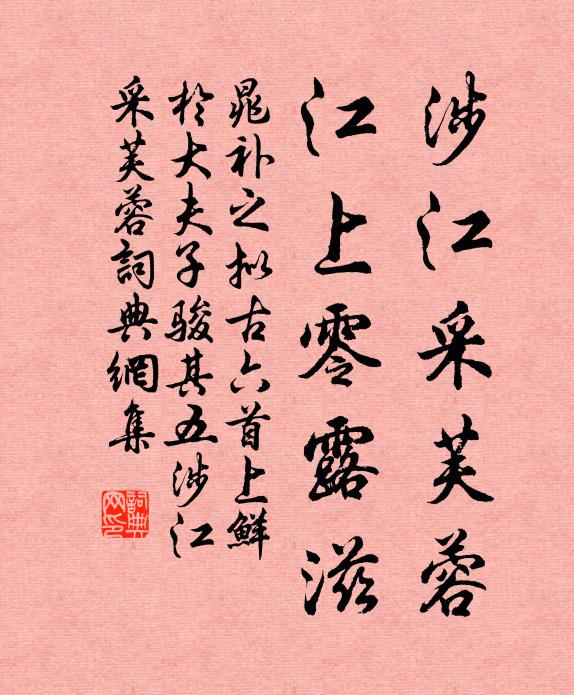 涉江采芙蓉
江上零露滋
晁补之拟古六首上鲜
于大夫子骏其五涉江
采芙蓉詞典網集
詞典
网印